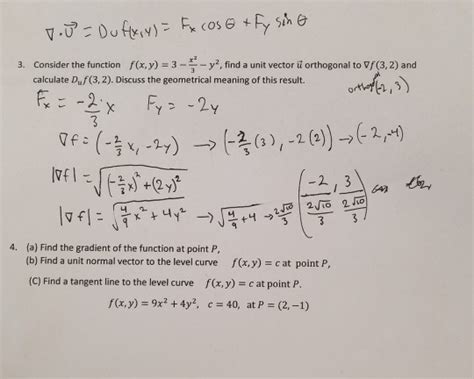 ∇·u⃗ = Duf(x,y) = Fx cos θ + Fy sin θ
3. Consider the function f(x, y) = 3 − x²/3 − y², find a unit vector u⃗ orthogonal to ∇f(3, 2) and
calculate Duf(3, 2). Discuss the geometrical meaning of this result.
(-2, 3)
Fx = -2/3 x Fy = -2y
∇f = (-2/3 x, -2y) → (-2/3 (3), -2(2)) → (-2, -4)
|∇f| = √((-2/3 x)² + (2y)²)
|∇f| = √(4/9 x² + 4y²) → √(4/9 + 4) → 2√10/3 (-2/(2√10/3), 3/(2√10/3))
4. (a) Find the gradient of the function at point P,
(b) Find a unit normal vector to the level curve f(x, y) = c at point P,
(C) Find a tangent line to the level curve f(x, y) = c at point P.
f(x, y) = 9x² + 4y², c = 40, at P = (2, −1)